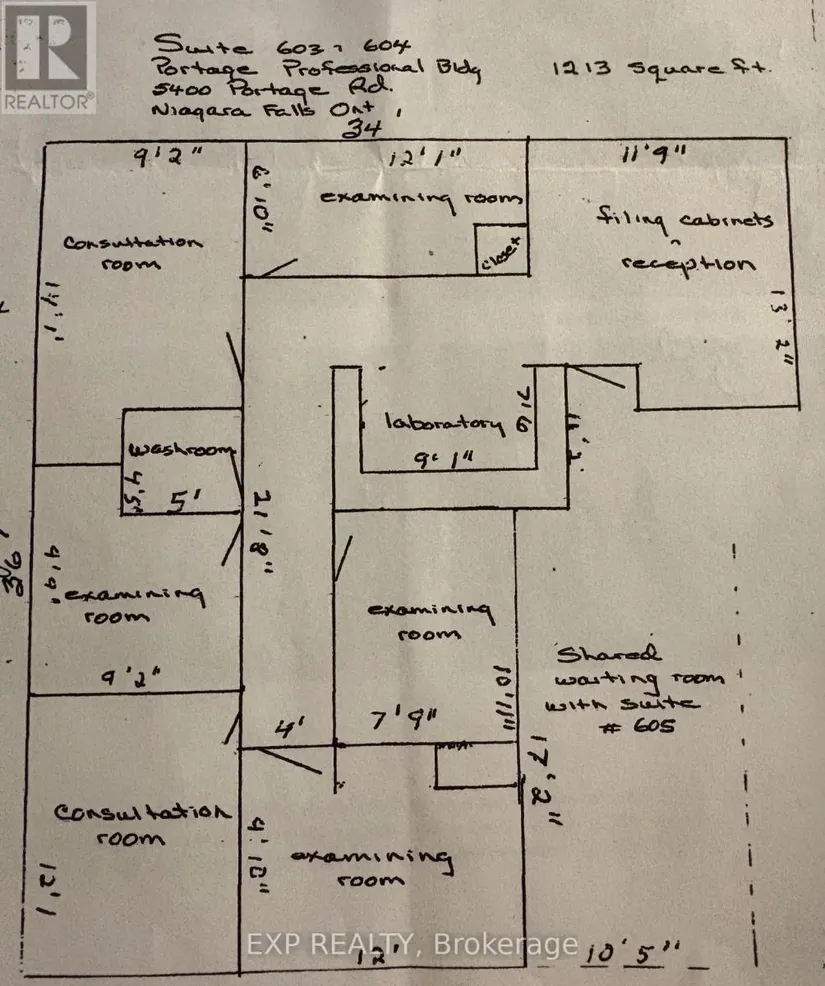 REALTOR®
Suite 603 & 604
Portage Professional Bldg
5400 Portage Rd.
Niagara Falls Ont
1213 square ft.
34
9'2"
12'1"
11'9"
6'10"
examining room
closet
filing cabinets
reception
13'2"
Consultation
room
14'1'
washroom
4'5"
5'
laboratory
7'6
9'1"
11'2"
21'8"
36'
9'9'
examining
room
9'2"
examining
room
10'11"
7'9"
4'
Shared
waiting room
with suite
# 605
17'2"
Consultation
room
12'1
9'10"
examining
room
12'
10'5"
EXP REALTY, Brokerage